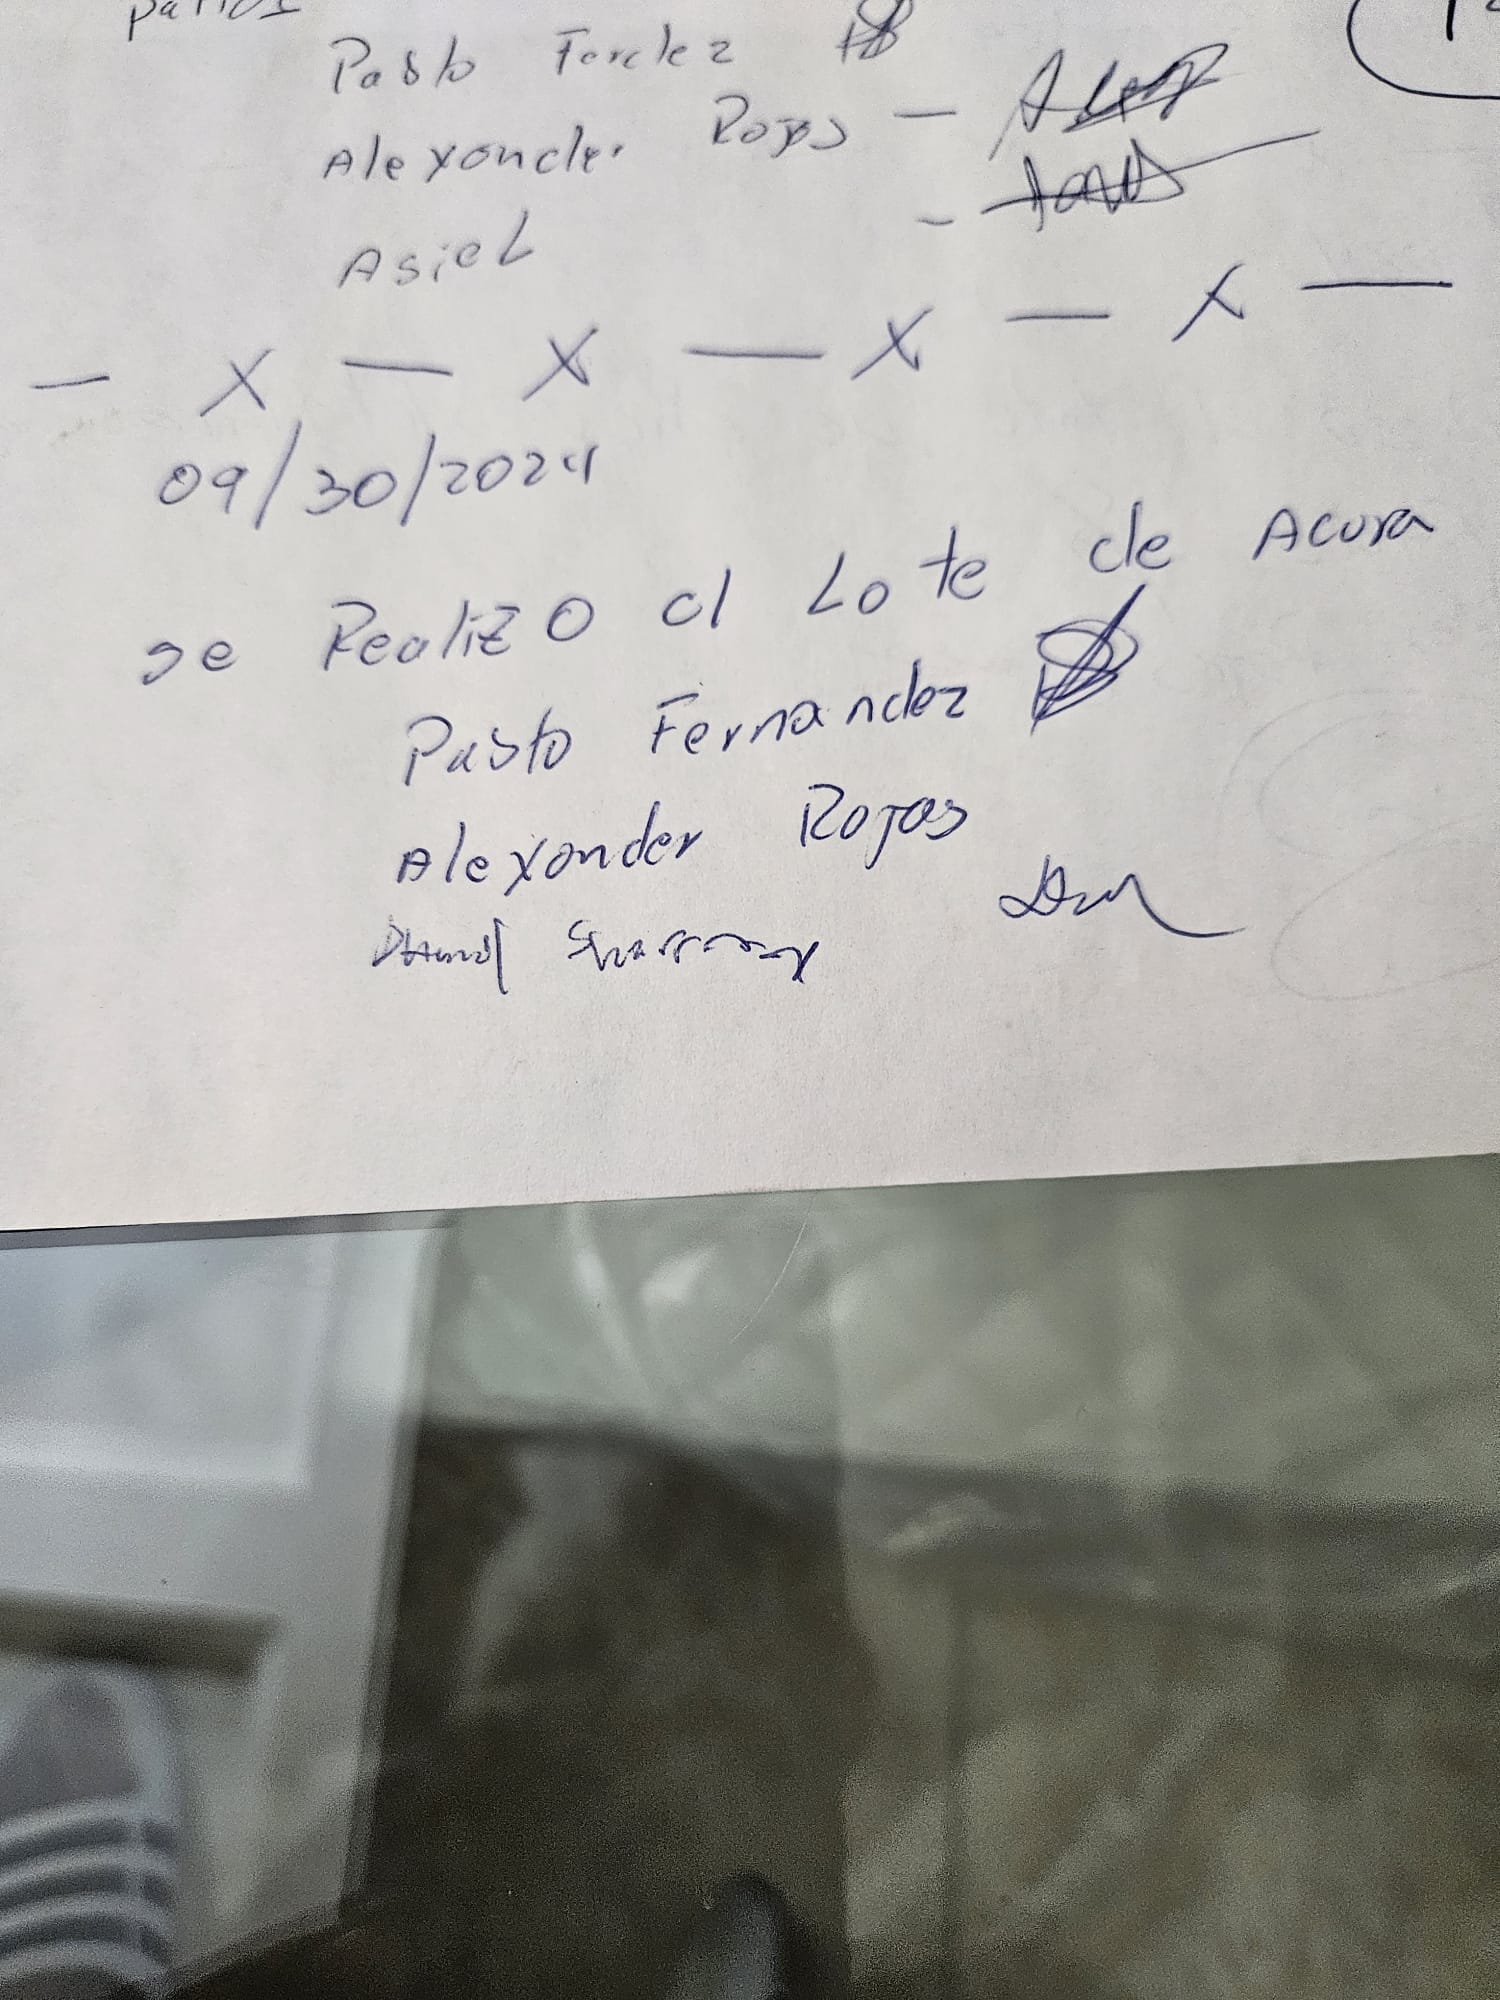 Pablo Ferdez
Alexander Rojas —
Asiel —
— X — X — X — X —
09/30/2024
se Realizo el Lote de Acura
Pablo Fernandez
Alexander Rojas